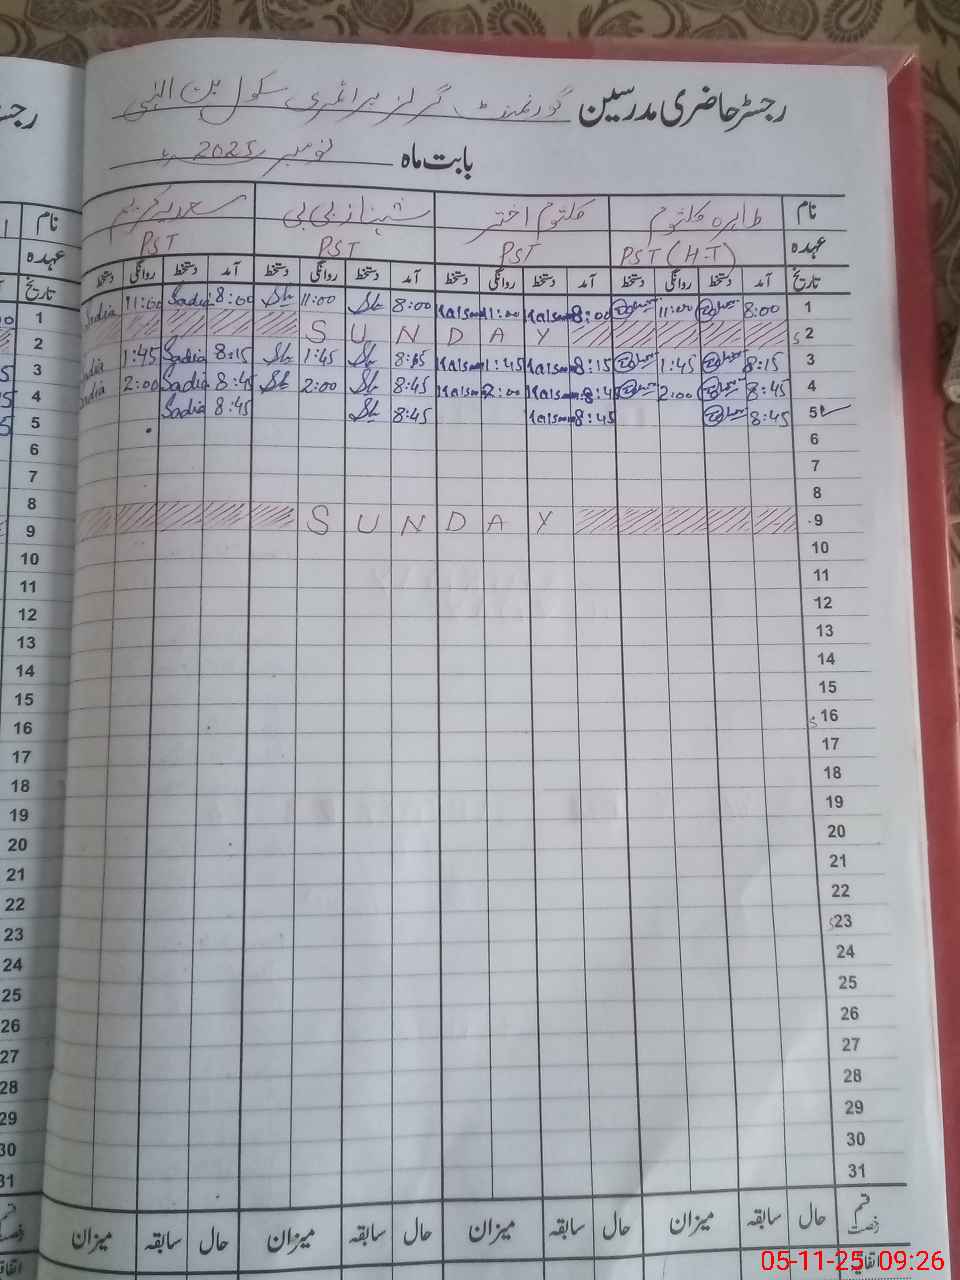 رجسٹر حاضری مدرسین گورنمنٹ گرلز پرائمری سکول بن الہٰی
بابت ماہ نومبر 2025ء
نام طاہرہ کلثوم کلثوم اختر شہناز بی بی سعدیہ کریم
عہدہ PST (H.T) PST PST PST
تاریخ آمد دستخط روانگی دستخط آمد دستخط روانگی دستخط آمد دستخط روانگی دستخط آمد دستخط روانگی دستخط
1 8:00 11:00 8:00 Kalsoom 11:00 Kalsoom 8:00 Sh 11:00 Sh 8:00 Sadia 11:00 Sadia
2 SUNDAY
3 8:15 1:45 8:15 Kalsoom 1:45 Kalsoom 8:15 Sh 1:45 Sh 8:15 Sadia 1:45 Sadia
4 8:45 2:00 8:45 Kalsoom 2:00 Kalsoom 8:45 Sh 2:00 Sh 8:45 Sadia 2:00 Sadia
5 8:45 8:45 Kalsoom 8:45 Sh 8:45 Sadia
6
7
8
9 SUNDAY
10
11
12
13
14
15
16
17
18
19
20
21
22
23
24
25
26
27
28
29
30
31
قسم رخصت حال سابقہ میزان حال سابقہ میزان حال سابقہ میزان حال سابقہ میزان
اتفاقیہ
05-11-25 09:26